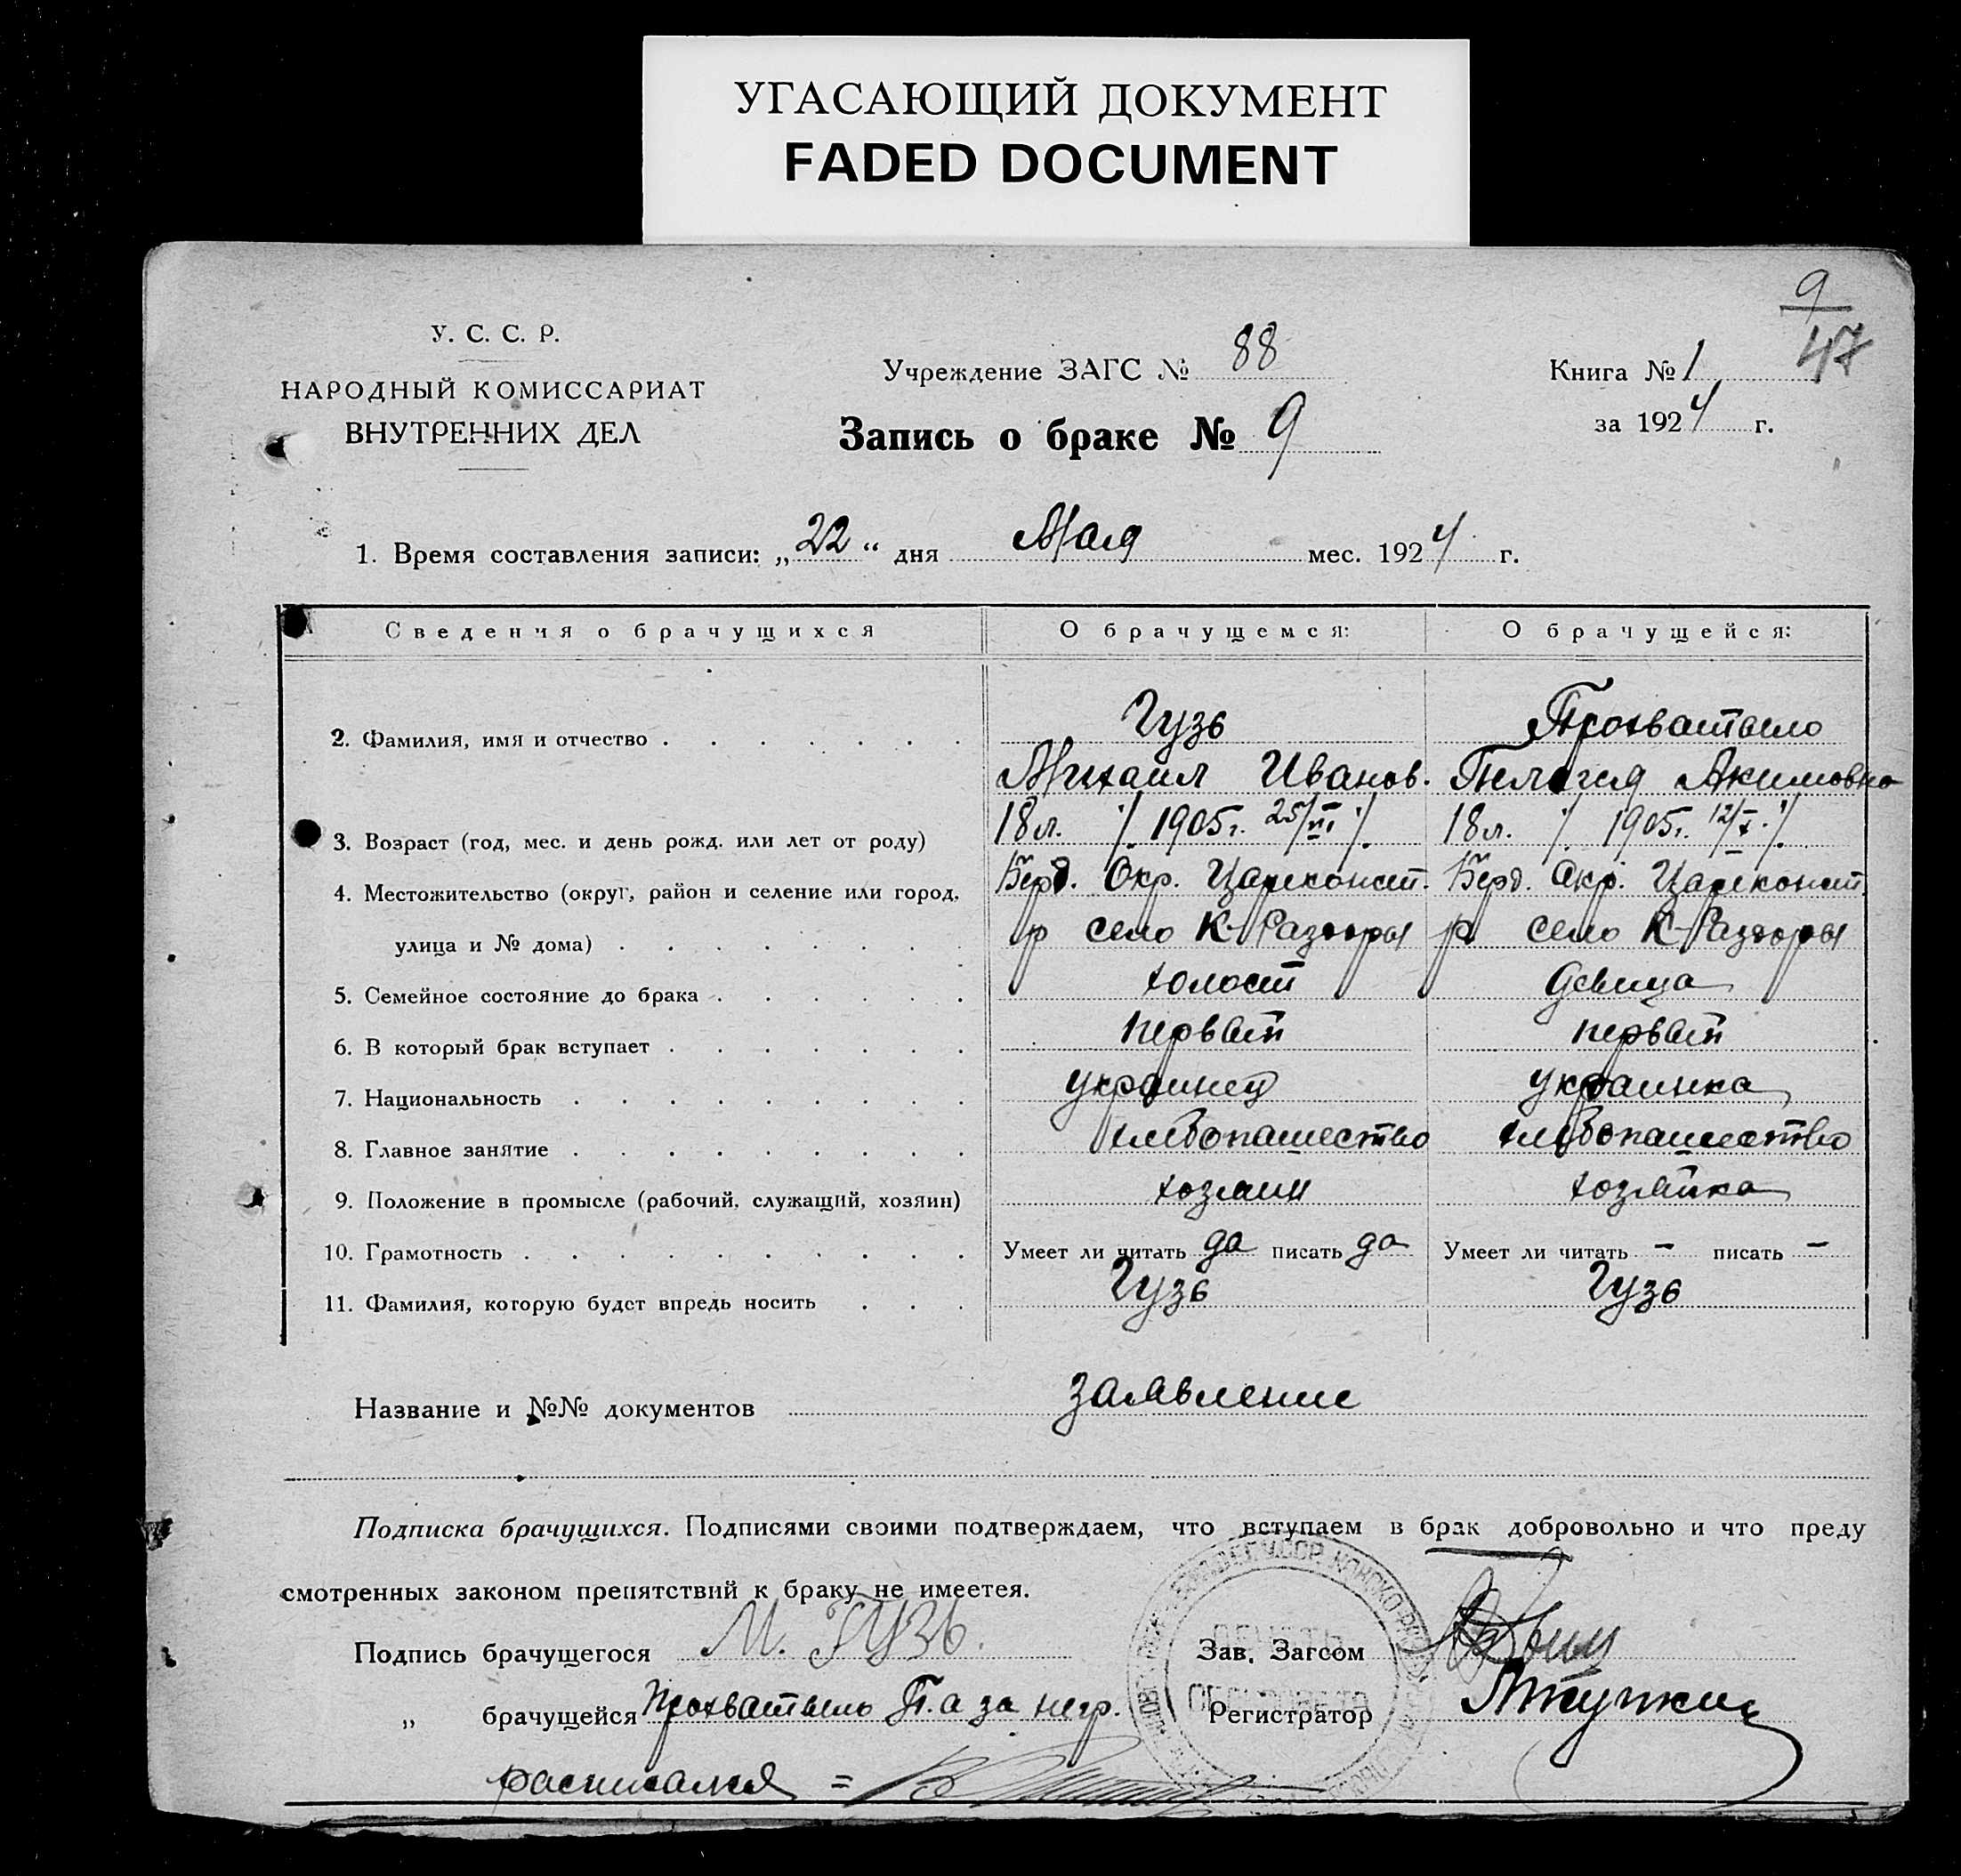 УГАСАЮЩИЙ ДОКУМЕНТ
FADED DOCUMENT
9
47
У. С. С. Р.
НАРОДНЫЙ КОМИССАРИАТ
ВНУТРЕННИХ ДЕЛ
Учреждение ЗАГС № 88
Запись о браке № 9
Книга № 1
за 1924 г.
1. Время составления записи: „22“ дня Мая мес. 1924 г.
Сведения о брачущихся О брачущемся: О брачущейся:
2. Фамилия, имя и отчество Гузь Прохватыло
Михаил Иванов. Пелагия Акимовна
3. Возраст (год, мес. и день рожд. или лет от роду) 18 л. /. 1905 г. 25/VI /. 18 л. /. 1905 г. 12/X /.
4. Местожительство (округ, район и селение или город, Берд. Окр. Цареконст. Берд. Окр. Цареконст.
улица и № дома) р село К-Раздоры р село К-Раздоры
5. Семейное состояние до брака холост девица
6. В который брак вступает первый первый
7. Национальность украинец украинка
8. Главное занятие хлебопашество хлебопашество
9. Положение в промысле (рабочий, служащий, хозяин) хозяин хозяйка
10. Грамотность Умеет ли читать да писать да Умеет ли читать – писать –
11. Фамилия, которую будет впредь носить Гузь Гузь
Название и №№ документов заявление
Подписка брачущихся. Подписями своими подтверждаем, что вступаем в брак добровольно и что преду
смотренных законом препятствий к браку не имеетея.
Подпись брачущегося М. Гузь. Зав. Загсом
„ брачущейся Прохватыло П. а за негр. Регистратор
расписался =